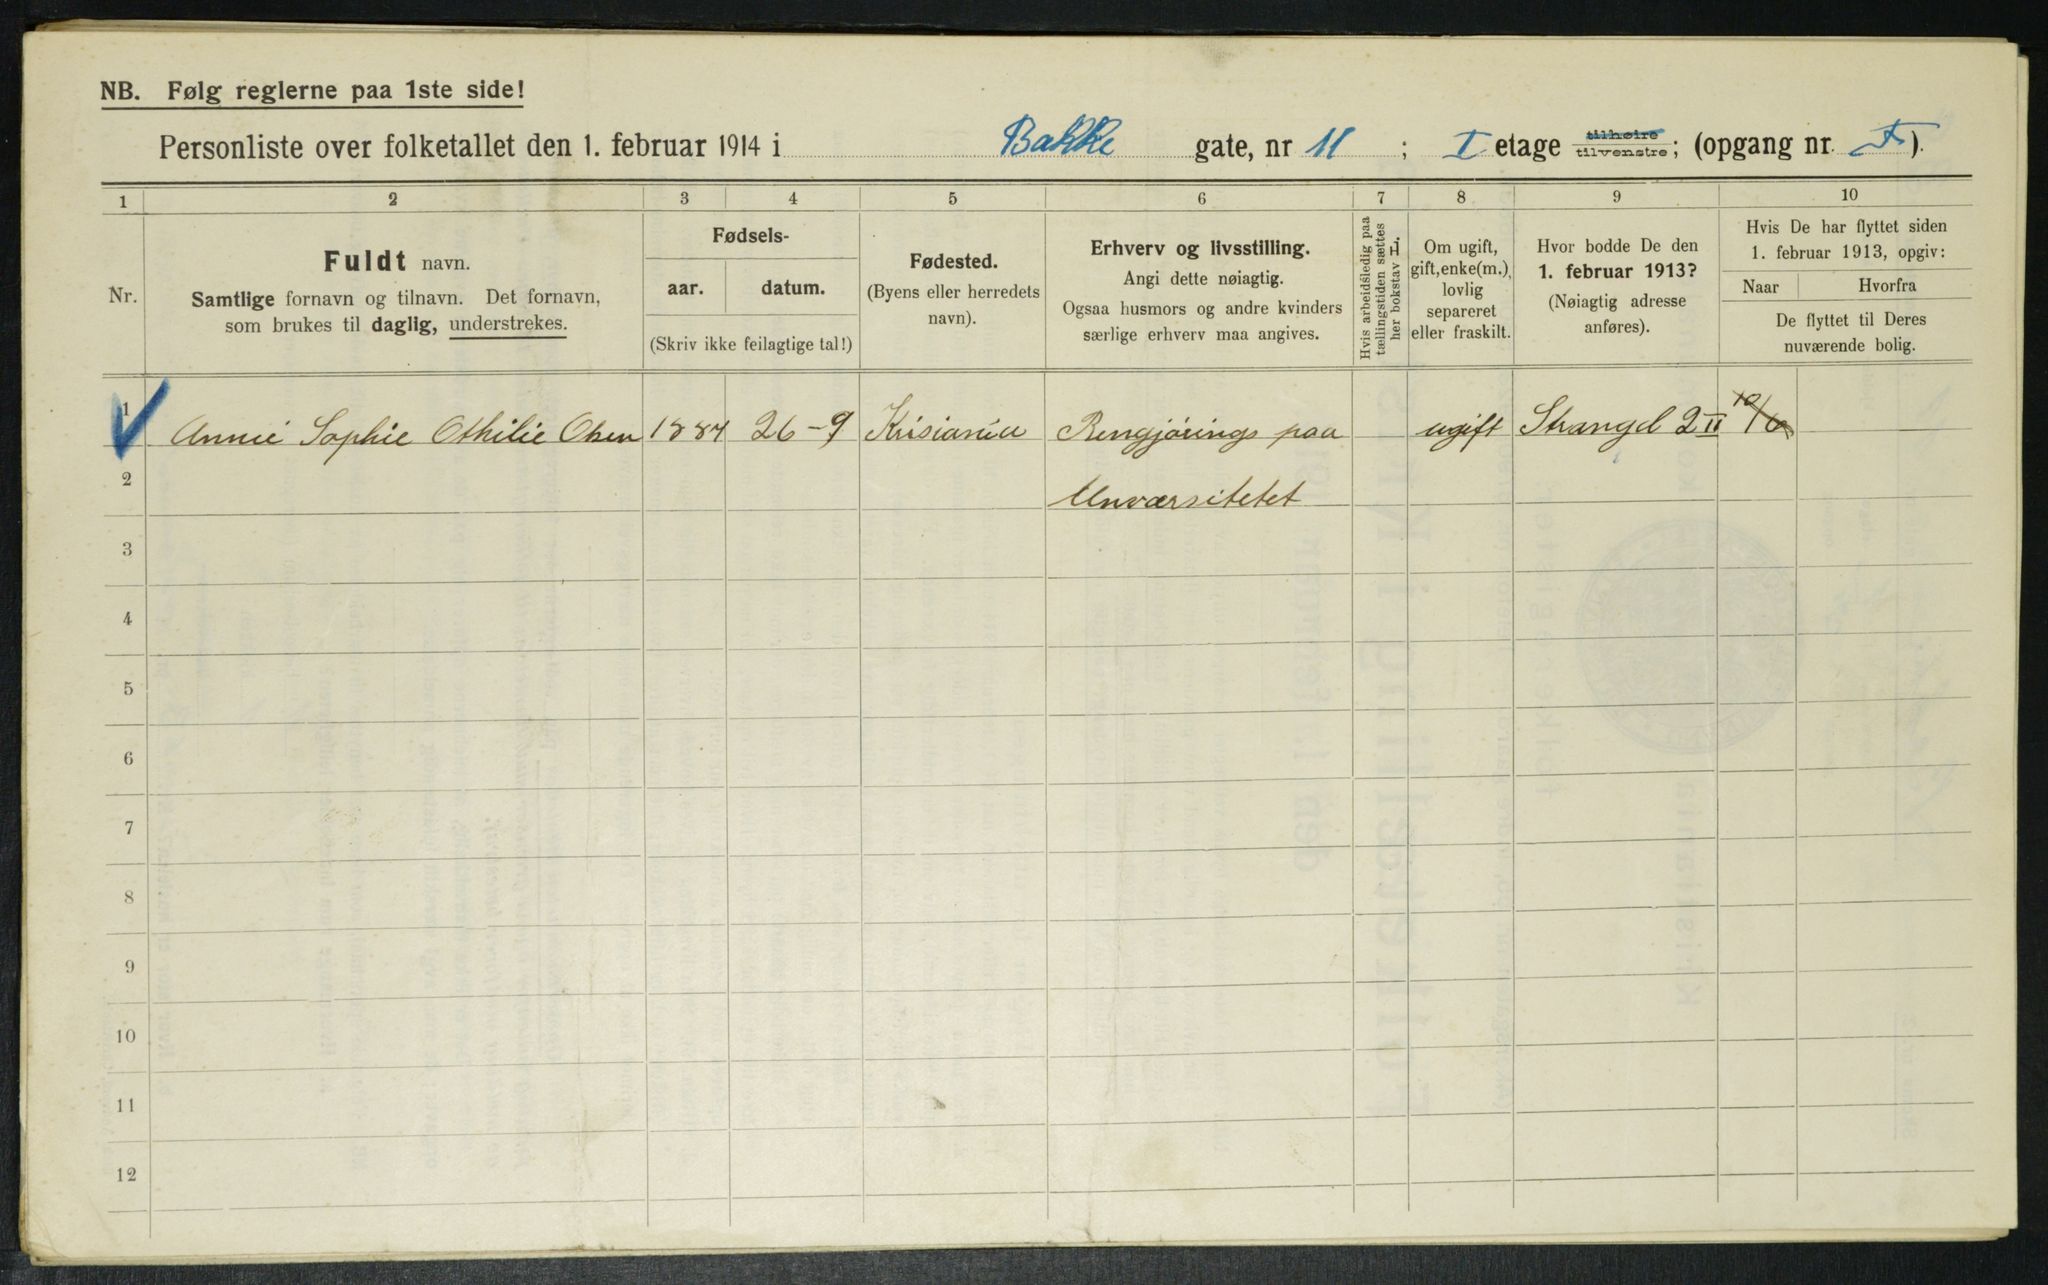 NB. Følg reglerne paa 1ste side!
Personliste over folketallet den 1. februar 1914 i Bakke gate, nr 11 ; I etage tilhøire tilvenstre; (opgang nr. ).
1 2 3 4 5 6 7 8 9 10
Nr.
Fuldt navn.
Samtlige fornavn og tilnavn. Det fornavn,
som brukes til daglig, understrekes.
Fødsels-
aar. datum.
(Skriv ikke feilagtige tal!)
Fødested.
(Byens eller herredets
navn).
Erhverv og livsstilling.
Angi dette nøiagtig.
Ogsaa husmors og andre kvinders
særlige erhverv maa angives.
Hvis arbeidsledig paa
tællingstiden sættes
her bokstav L
Om ugift,
gift, enke(m.),
lovlig
separeret
eller fraskilt.
Hvor bodde De den
1. februar 1913?
(Nøiagtig adresse
anføres).
Hvis De har flyttet siden
1. februar 1913, opgiv:
Naar Hvorfra
De flyttet til Deres
nuværende bolig.
1 Annie Sophie Othilie Olsen 1887 26-9 Krisiania Rengjørings paa ugift Strangd 2 II 10/6
2 Unværsitetet
3
4
5
6
7
8
9
10
11
12